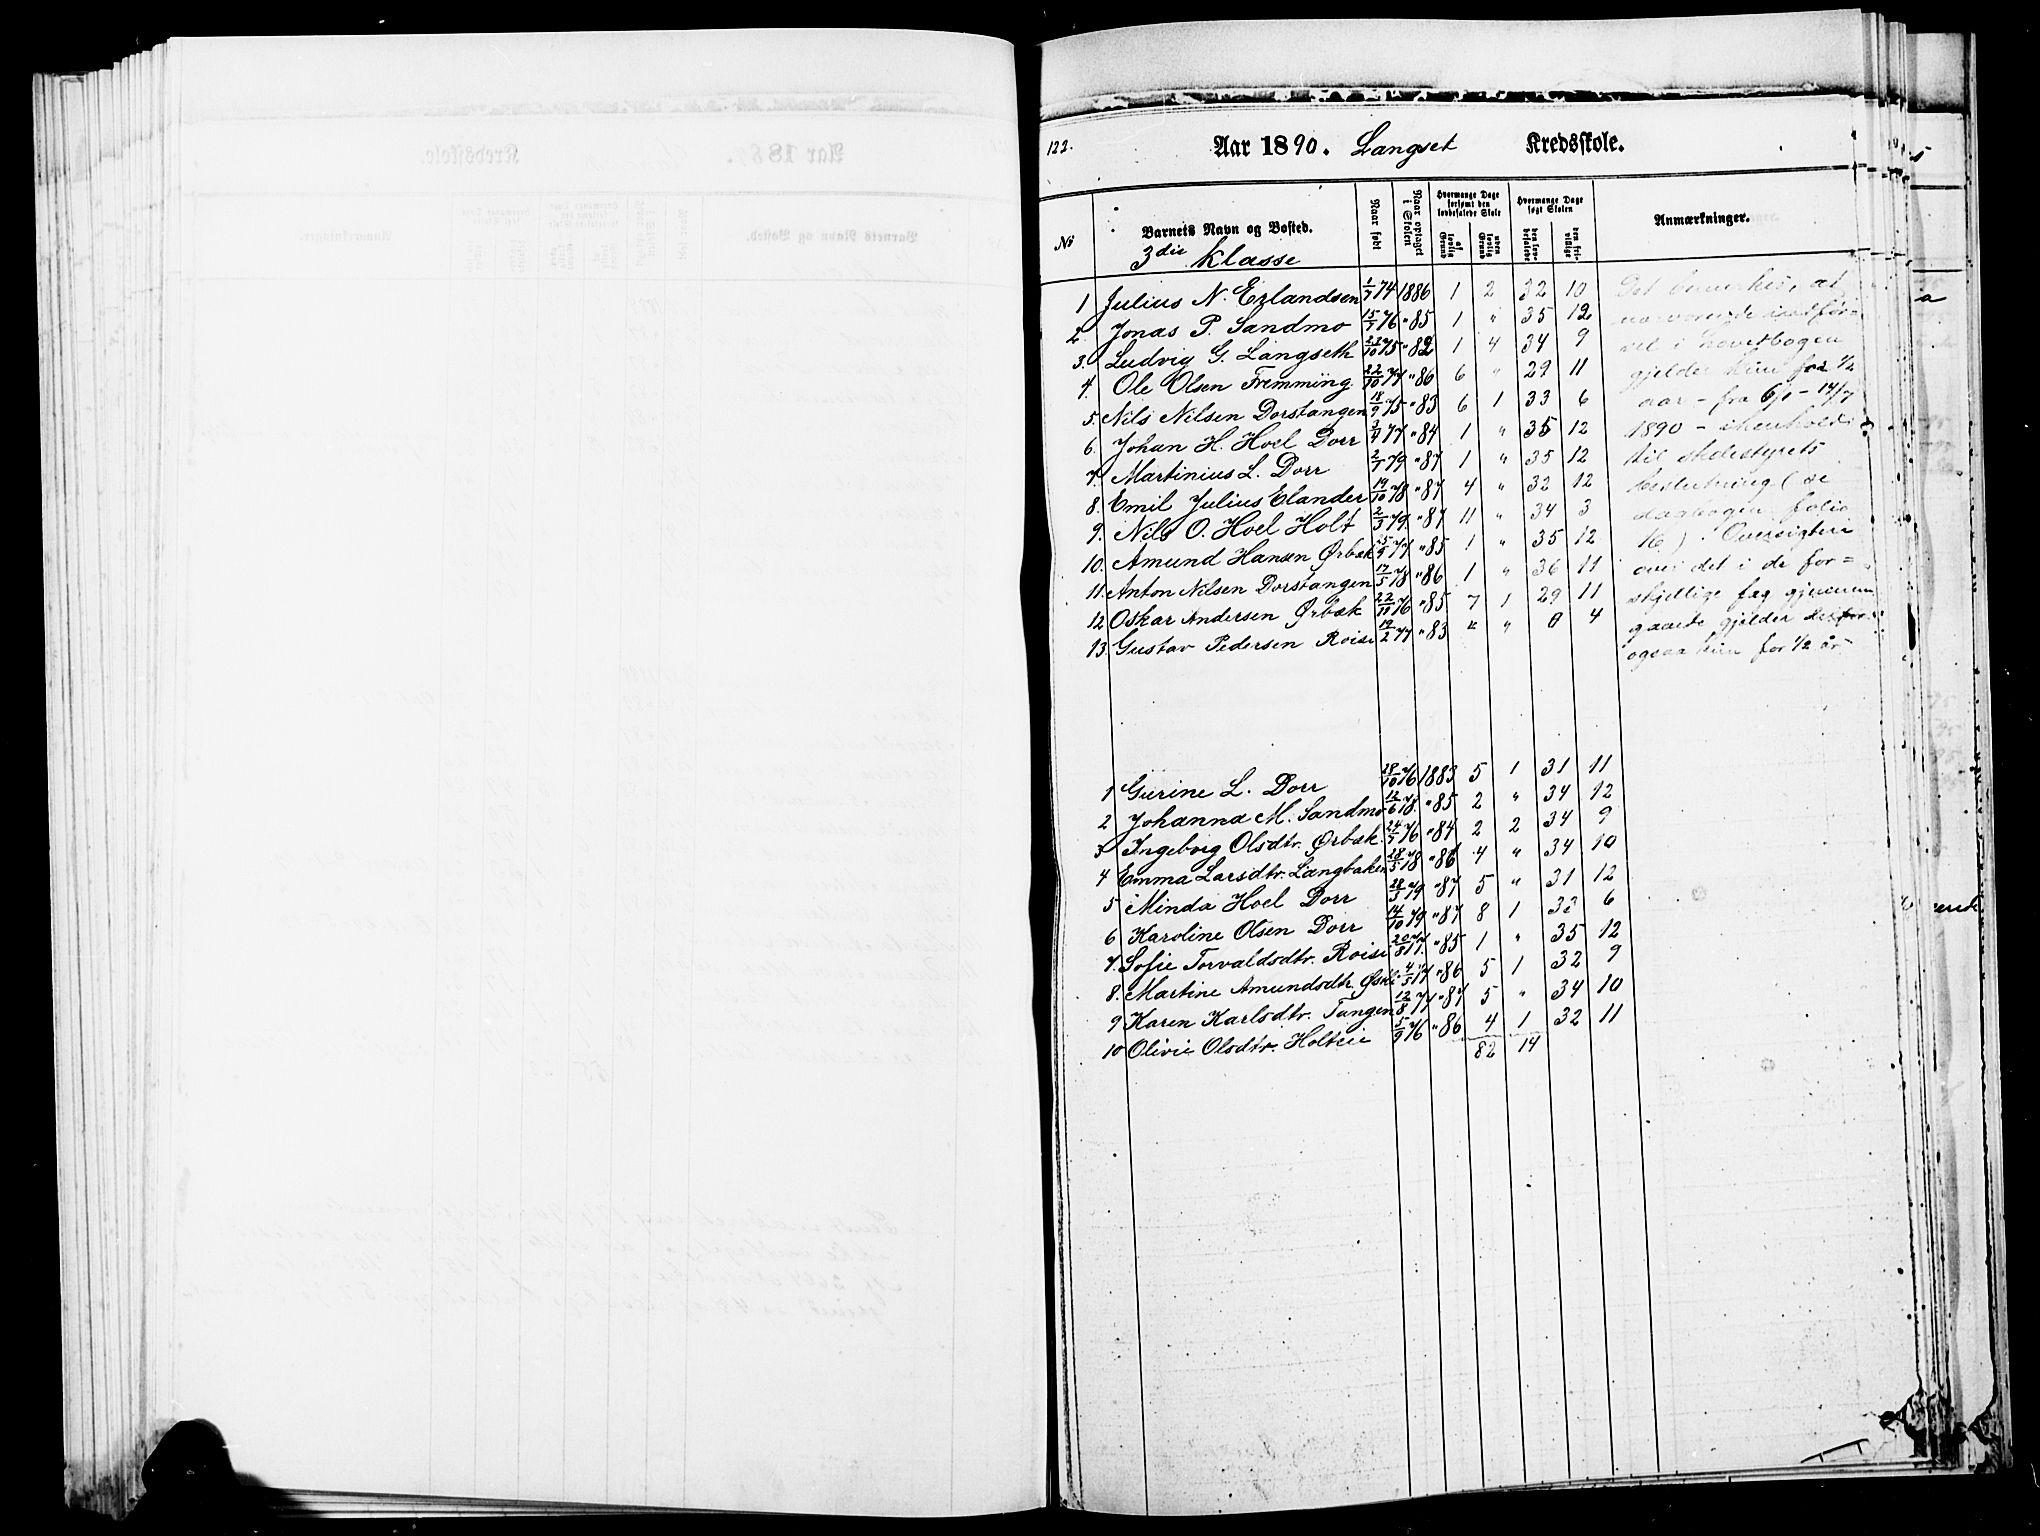 122.
Aar 1890. Langset Kredsskole.
No
Barnets Navn og Bosted.
Naar født
Naar optaget i Skolen
Hvormange Dage forsømt den lovbefalede Skole
af lovlig Grund
uden lovlig Grund
Hvormange Dage søgt Skolen
den lovbefalede
den frivillige
Anmærkninger.
3die Klasse
1 Julius N. Erlandsen 1/7 74 1886 1 2 32 10 Det bemerkes, at
2 Jonas P. Sandmo 15/7 76 " 85 1 " 35 12 nærværende indfør=
3. Ludvig G. Langseth 22/10 75 " 82 1 4 34 9 sel i hovedbogen
4. Ole Olsen Fremming 22/10 77 " 86 6 " 29 11 gjelder kun for 1/2
5. Nils Nilsen Dorstangen 18/9 75 " 83 6 1 33 6 aar - fra - 14/7
6. Johan H. Hoel Dorr 77 " 84 1 " 35 12 1890 - i henhold
7. Martinius L. Dorr 2/7 79 " 87 1 " 35 12 til skolestyrets
8. Emil Julius Elander 19/10 78 " 87 4 " 32 12 beslutning (se
9. Nils O. Hoel Holt 2/3 79 " 87 11 " 34 3 dagbogen folio
10. Amund Hansen Ørbæk 77 " 85 1 " 35 12 16). Oversigten
11. Anton Nilsen Dorstangen 17/5 78 " 86 1 " 36 11 over det i de for=
12 Oskar Andersen Ørbæk 22/11 76 " 85 7 1 29 11 skjellige fag gjennem
13. Gustav Pedersen Roise 19/2 77 " 83 " " 0 4 gaaede gjelder
ogsaa kun for 1/2 år
1 Gurine L. Dorr 28/10 76 1883 5 1 31 11
2 Johanna M. Sandmo 12/6 78 " 85 2 " 34 12
3 Ingeborg Olsdtr. Ørbæk 24/7 76 " 84 2 2 34 9
4 Emma Larsdtr. Langbakken 28/5 78 " 86 4 " 34 10
5 Minda Hoel Dorr 28/3 79 " 87 5 " 31 12
6 Karoline Olsen Dorr 14/10 79 " 87 8 1 33 6
7. Sofie Torvaldsdtr. Roise 20/8 77 " 85 1 " 35 12
8. Martine Amundsdtr. 4/5 77 " 86 5 1 32 9
9 Karen Karlsdtr. Tangen 12/8 77 " 87 5 " 34 10
10 Olivie Olsdtr. Holteie 5/9 76 " 86 4 1 32 11
82 14